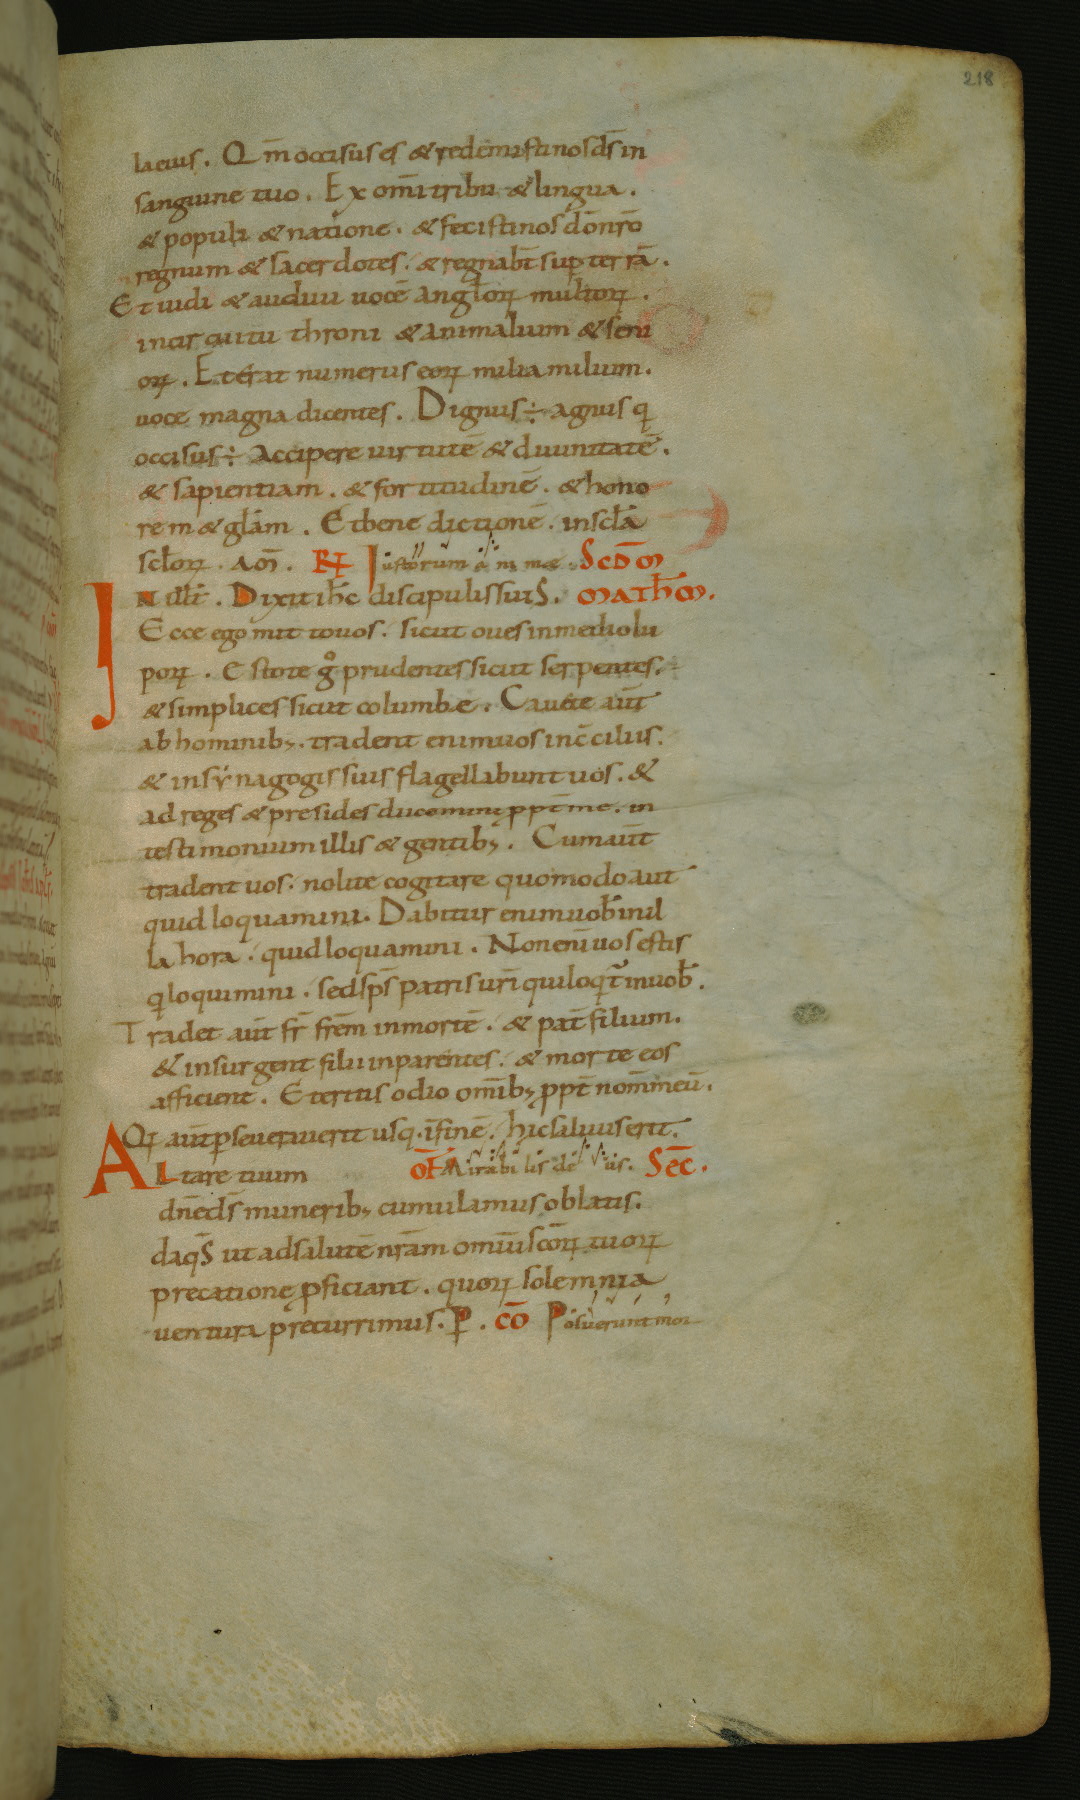 218
la eius. Qm̄ occisus es & redemisti nos d̄s in
sanguine tuo. Ex om̄i tribu & lingua.
& populi & natione. & fecisti nos dō nr̄o
regnum & sacerdotes. & regnab̄t sup terrā.
Et uidi & audiui uocē anglorꝝ multorꝝ.
in circuitu throni & animalium & seni
orꝝ. Et erat numerus eorꝝ milia milium.
uoce magna dicentes. Dignus ÷ agnus q
occisus ÷ Accipere uirtutē & diuinitatē.
& sapientiam. & fortitudinē. & hono
rem & glam̄. Et benedictionē. in scl̄a
scl̄orꝝ. Am̄. R̄ Iustorum animae. Scdm̄
IN illīr. Dixit ih̄c discipulis suis. math̄m.
Ecce ego mitto uos. sicut oues in medio lu
porꝝ. Estote gͦ prudentes sicut serpentes.
& simplices sicut columbe. Cauete aūt
ab hominibꝫ. tradent enim uos in c̄ciliis.
& in synagogis suis flagellabunt uos. &
ad reges & presides ducemini ꝓpt̄ me. in
testimonium illis & gentibꝫ. Cum aūt
tradent uos. nolite cogitare quomodo aut
quid loquamini. Dabitur enim uob̄ in il
la hora. quid loquamini. Non enī uos estis
qͥ loquimini. sed sp̄s patris ur̄i qui loqt̄ in uob̄.
Tradet aūt fr̄ fr̄em in mortē. & pat̄ filium.
& insurgent filii in parentes. & morte eos
afficient. Et eritis odio om̄ibꝫ ꝓpt̄ nom̄ meū.
Qi aūt ꝑseuerauerit usq. ī finē. hic saluus erit.
Altare tuum OF̄ Mirabilis d̄e us. Sec̄.
dn̄e d̄s muneribꝫ cumulamus oblatis.
daq̄s ut ad salutē nr̄am omiū sc̄orꝝ tuorꝝ
precatione ꝓficiant. quorꝝ solemnia
uentura precurrimus. P. cō Posuerunt mor